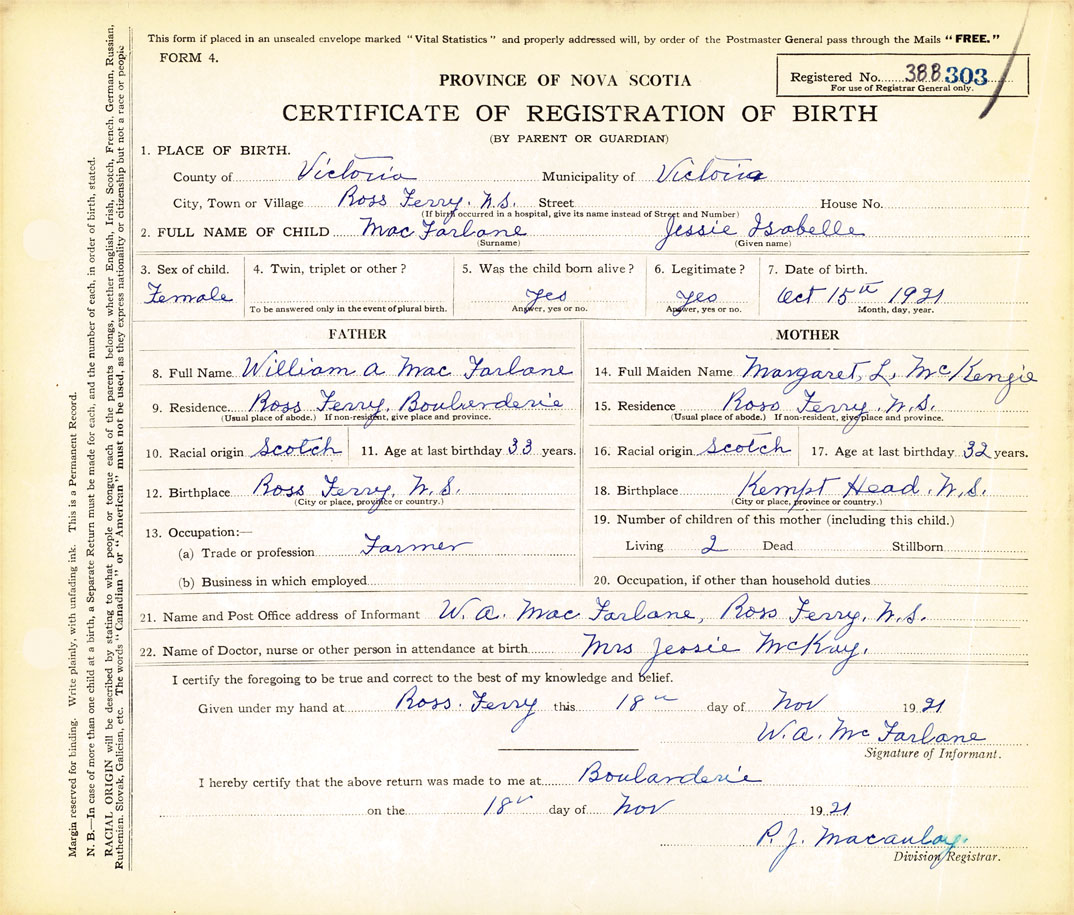 This form if placed in an unsealed envelope marked "Vital Statistics" and properly addressed will, by order of the Postmaster General pass through the Mails "FREE."
FORM 4.
Registered No. 388 303
For use of Registrar General only.
PROVINCE OF NOVA SCOTIA
CERTIFICATE OF REGISTRATION OF BIRTH
(BY PARENT OR GUARDIAN)
1. PLACE OF BIRTH.
County of Victoria Municipality of Victoria
City, Town or Village Ross Ferry. N.S. Street House No.
(If birth occurred in a hospital, give its name instead of Street and Number)
2. FULL NAME OF CHILD Mac Farlane Jessie Isabelle
(Surname) (Given name)
3. Sex of child. 4. Twin, triplet or other? 5. Was the child born alive? 6. Legitimate? 7. Date of birth.
Female yes yes Oct 15th 1921
To be answered only in the event of plural birth. Answer, yes or no. Answer, yes or no. Month, day, year.
FATHER
8. Full Name William A Mac Farlane
9. Residence Ross Ferry, Boularderie
(Usual place of abode.) If non-resident, give place and province.
10. Racial origin Scotch 11. Age at last birthday 33 years.
12. Birthplace Ross Ferry, N.S.
(City or place, province or country.)
13. Occupation:—
(a) Trade or profession Farmer
(b) Business in which employed
MOTHER
14. Full Maiden Name Margaret, L. McKenzie
15. Residence Ross Ferry. N.S.
(Usual place of abode.) If non-resident, give place and province.
16. Racial origin Scotch 17. Age at last birthday 32 years.
18. Birthplace Kempt Head. N.S.
(City or place, province or country.)
19. Number of children of this mother (including this child.)
Living 2 Dead Stillborn
20. Occupation, if other than household duties
21. Name and Post Office address of Informant W. A. Mac Farlane, Ross Ferry. N.S.
22. Name of Doctor, nurse or other person in attendance at birth Mrs Jessie McKay.
I certify the foregoing to be true and correct to the best of my knowledge and belief.
Given under my hand at Ross. Ferry this 18th day of Nov 1921
W. A. McFarlane
Signature of Informant.
I hereby certify that the above return was made to me at Boularderie
on the 18th day of Nov 1921
P. J. Macaulay.
Division Registrar.
Margin reserved for binding. Write plainly, with unfading ink. This is a Permanent Record.
N. B.—In case of more than one child at a birth, a Separate Return must be made for each, and the number of each, in order of birth, stated.
RACIAL ORIGIN will be described by stating to what people or tongue each of the parents belongs, whether English, Irish, Scotch, French, German, Russian,
Ruthenian, Slovak, Galician, etc. The words "Canadian" or "American" must not be used, as they express nationality or citizenship but not a race or people